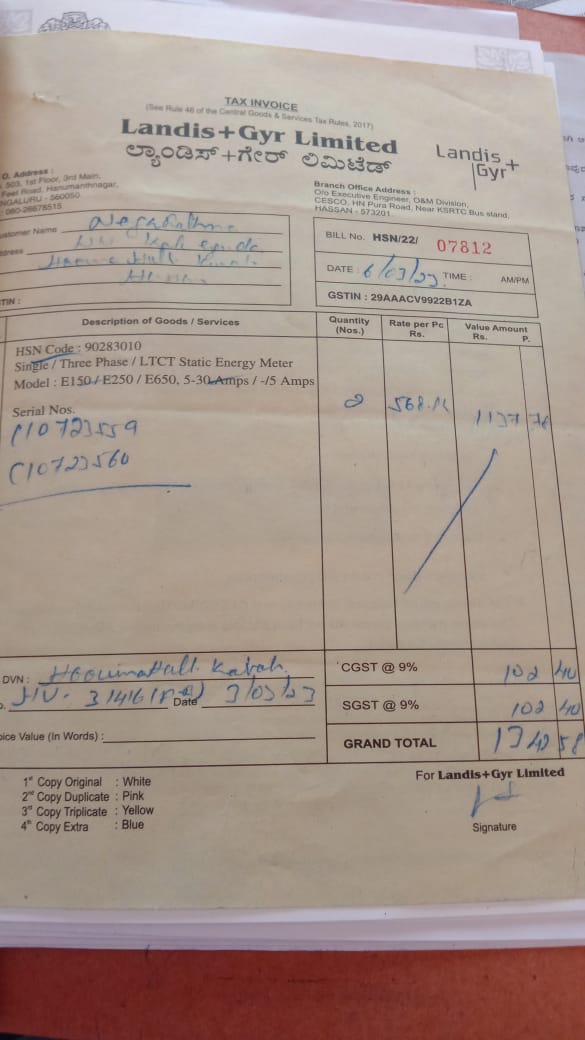 TAX INVOICE
(See Rule 46 of the Central Goods & Services Tax Rules, 2017)
Landis+Gyr Limited
ಲ್ಯಾಂಡಿಸ್+ಗೇರ್ ಲಿಮಿಟೆಡ್
Landis+
Gyr
O. Address :
503, 1st Floor, 3rd Main,
Feet Road, Hanumanthnagar,
NGALURU - 560050
: 080-26678515
Branch Office Address :
O/o Executive Engineer, O&M Division,
CESCO, HN Pura Road, Near KSRTC Bus stand,
HASSAN - 573201
ustomer Name
dress
TIN :
BILL No. HSN/22/ 07812
DATE : 6/03/23 TIME : AM/PM
GSTIN : 29AAACV9922B1ZA
Description of Goods / Services
Quantity (Nos.)
Rate per Pc Rs.
Value Amount Rs. P.
HSN Code : 90283010
Single / Three Phase / LTCT Static Energy Meter
Model : E150 / E250 / E650, 5-30 Amps / -/5 Amps
2 568. 1137 76
Serial Nos.
C10723559
C10723560
DVN :
Date 3/03/23
oice Value (In Words) :
CGST @ 9% 102 40
SGST @ 9% 102 40
GRAND TOTAL 1342 58
1st Copy Original : White
2nd Copy Duplicate : Pink
3rd Copy Triplicate : Yellow
4th Copy Extra : Blue
For Landis+Gyr Limited
Signature